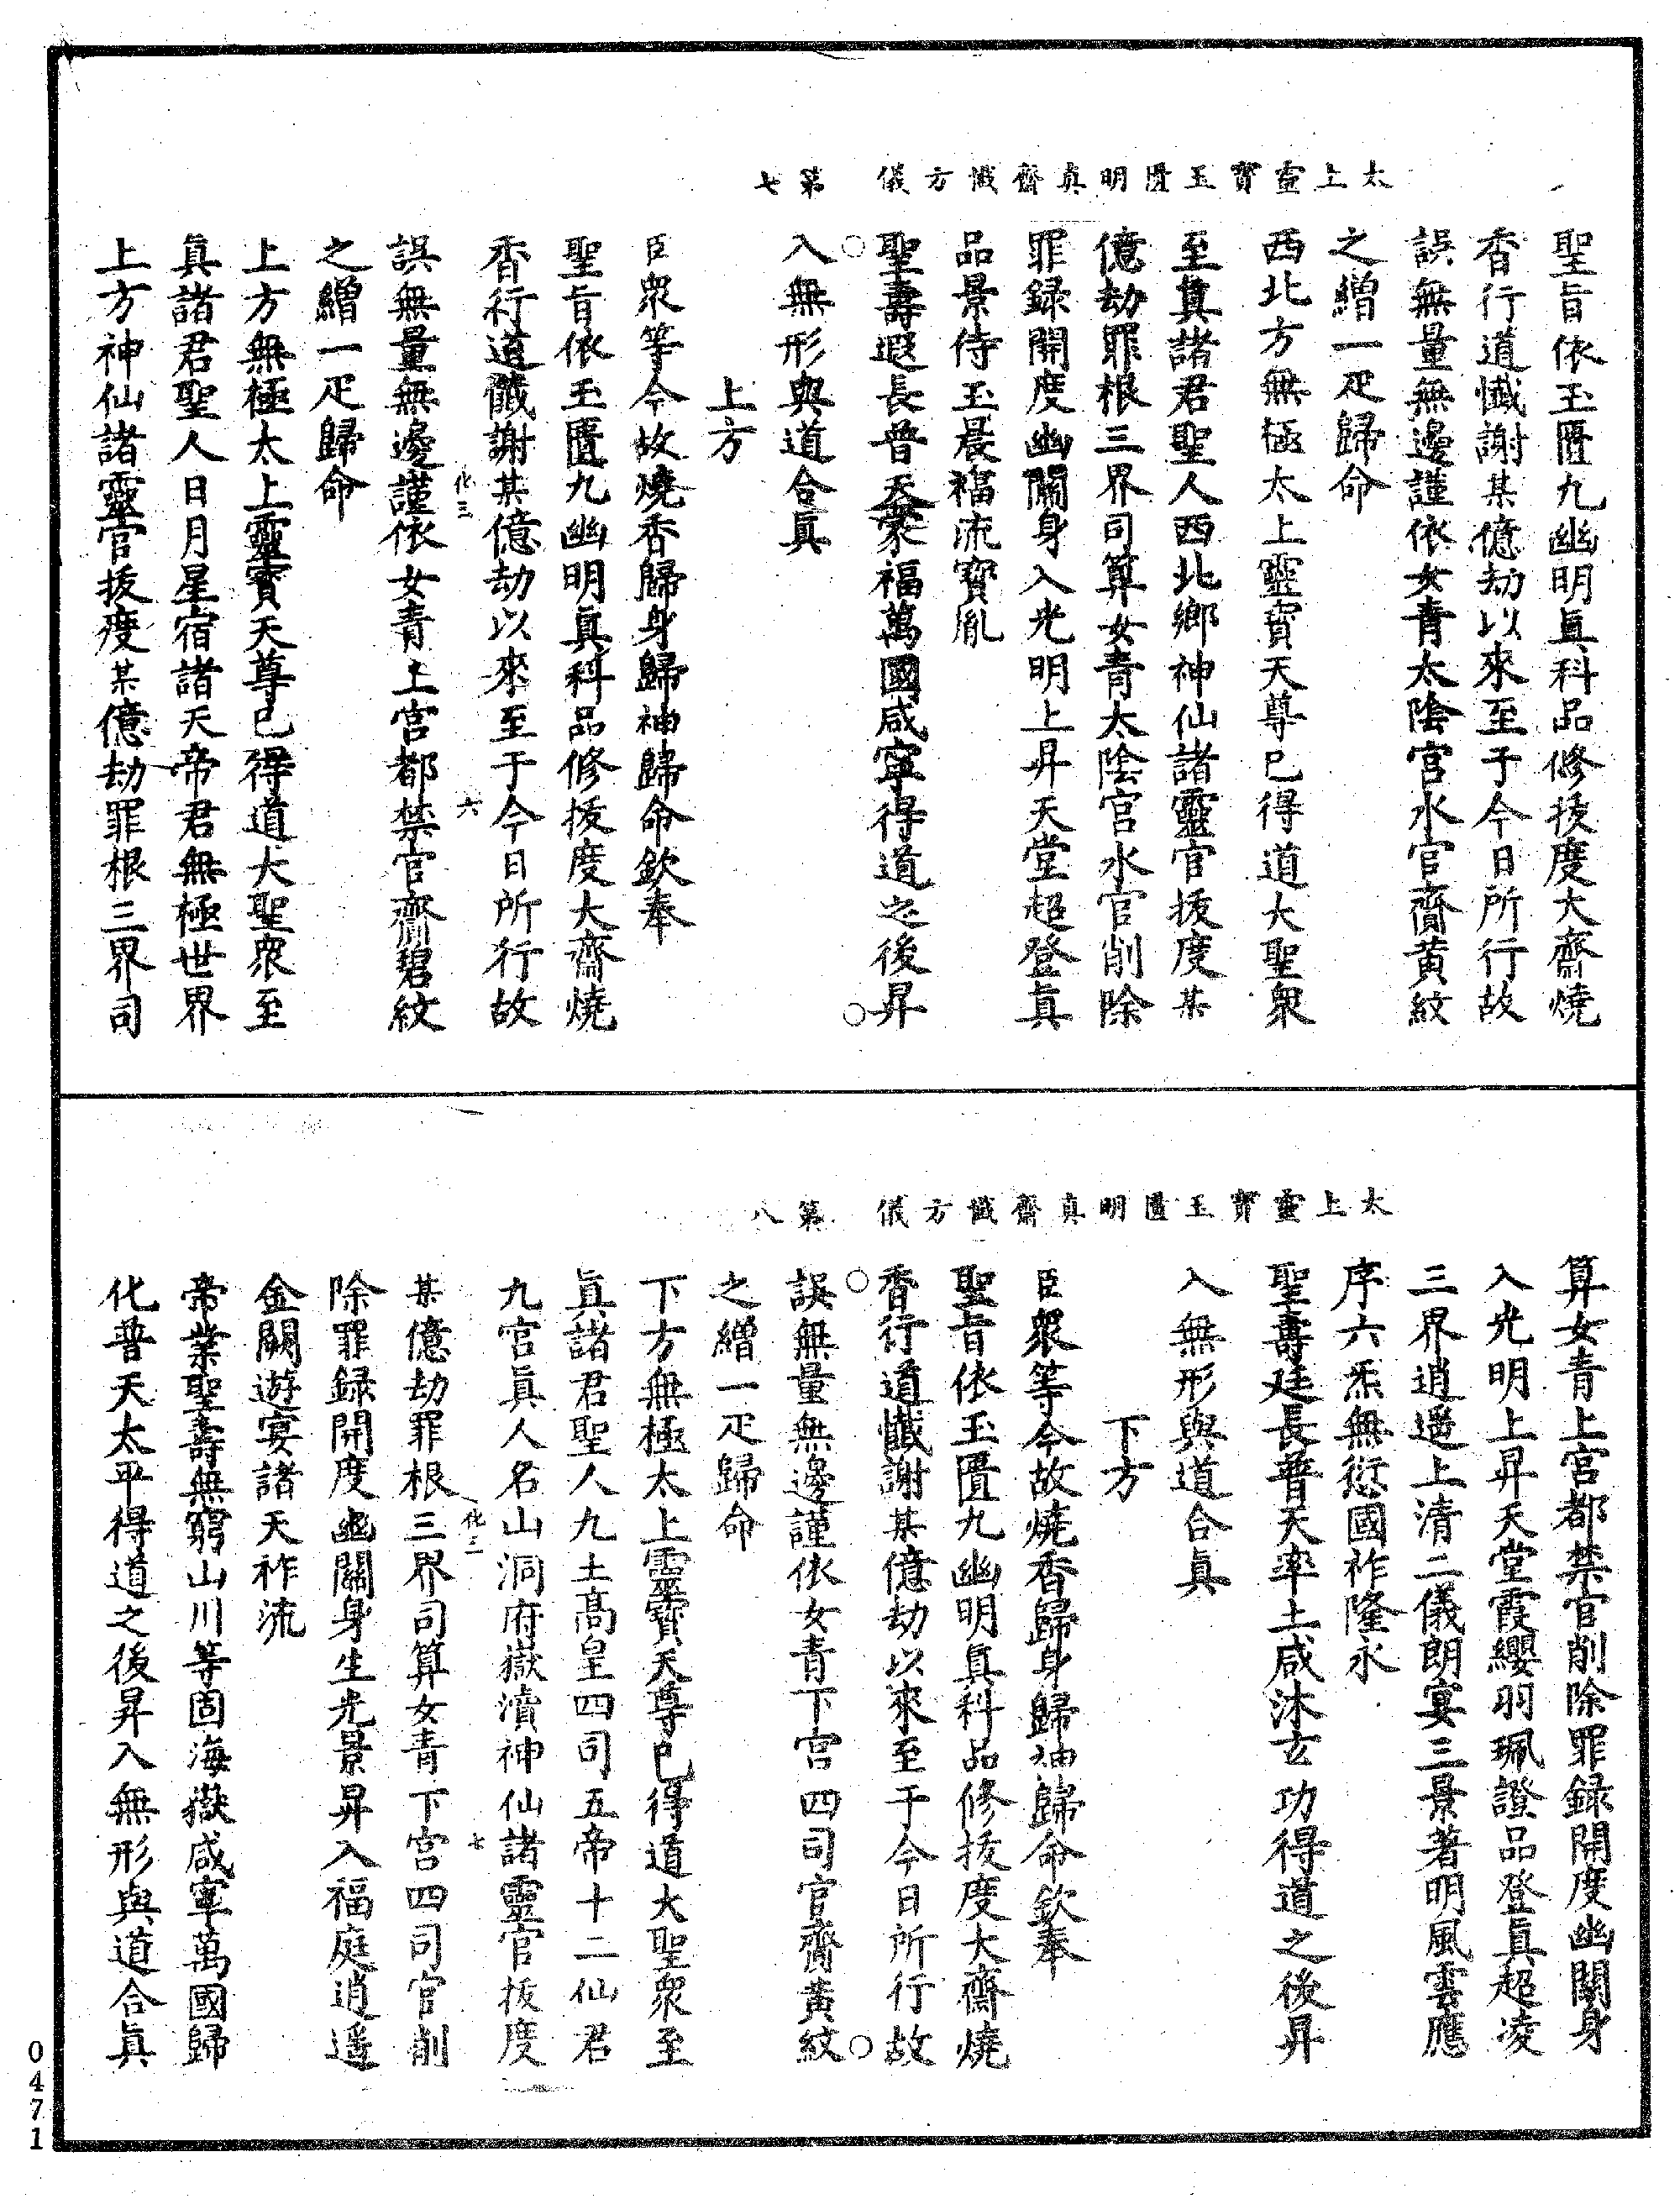 太上靈寶玉匱明真齋懺方儀 第七
聖旨依玉匱九幽明真科品修拔度大齋燒
香行道懺謝某億劫以來至于今日所行故
誤無量無邊謹依女青太陰宮水官齎黃紋
之繒一疋歸命
西北方無極太上靈寶天尊已得道大聖衆
至真諸君聖人西北鄉神仙諸靈官拔度某
億劫罪根三界司算女青太陰宮水官削除
罪録開度幽關身入光明上昇天堂超登真
品景侍玉晨福流寶胤
聖壽遐長普天蒙福萬國咸寧得道之後昇
入無形與道合真
上方
臣衆等今故燒香歸身歸神歸命欽奉
聖旨依玉匱九幽明真科品修拔度大齋燒
香行道懺謝某億劫以來至于今日所行故
化三 六
誤無量無邊謹依女青上宮都禁官齎碧紋
之繒一疋歸命
上方無極太上靈寶天尊已得道大聖衆至
真諸君聖人日月星宿諸天帝君無極世界
上方神仙諸靈官拔度某億劫罪根三界司
太上靈寶玉匱明真齋懺方儀 第八
算女青上宮都禁官削除罪録開度幽關身
入光明上昇天堂霞纓羽珮證品登真超凌
三界逍遥上清二儀朗宴三景著明風雲應
序六炁無愆國祚隆永
聖壽延長普天率土咸沐玄功得道之後昇
入無形與道合真
下方
臣衆等今故燒香歸身歸神歸命欽奉
聖旨依玉匱九幽明真科品修拔度大齋燒
香行道懺謝某億劫以來至于今日所行故
誤無量無邊謹依女青下宮四司官齎黃紋
之繒一疋歸命
下方無極太上靈寶天尊已得道大聖衆至
真諸君聖人九土高皇四司五帝十二仙君
九宮真人名山洞府嶽瀆神仙諸靈官拔度
化二 七
某億劫罪根三界司算女青下宮四司官削
除罪録開度幽關身生光景昇入福庭逍遥
金闕遊宴諸天祚流
帝業聖壽無窮山川等固海嶽咸寧萬國歸
化普天太平得道之後昇入無形與道合真
0471